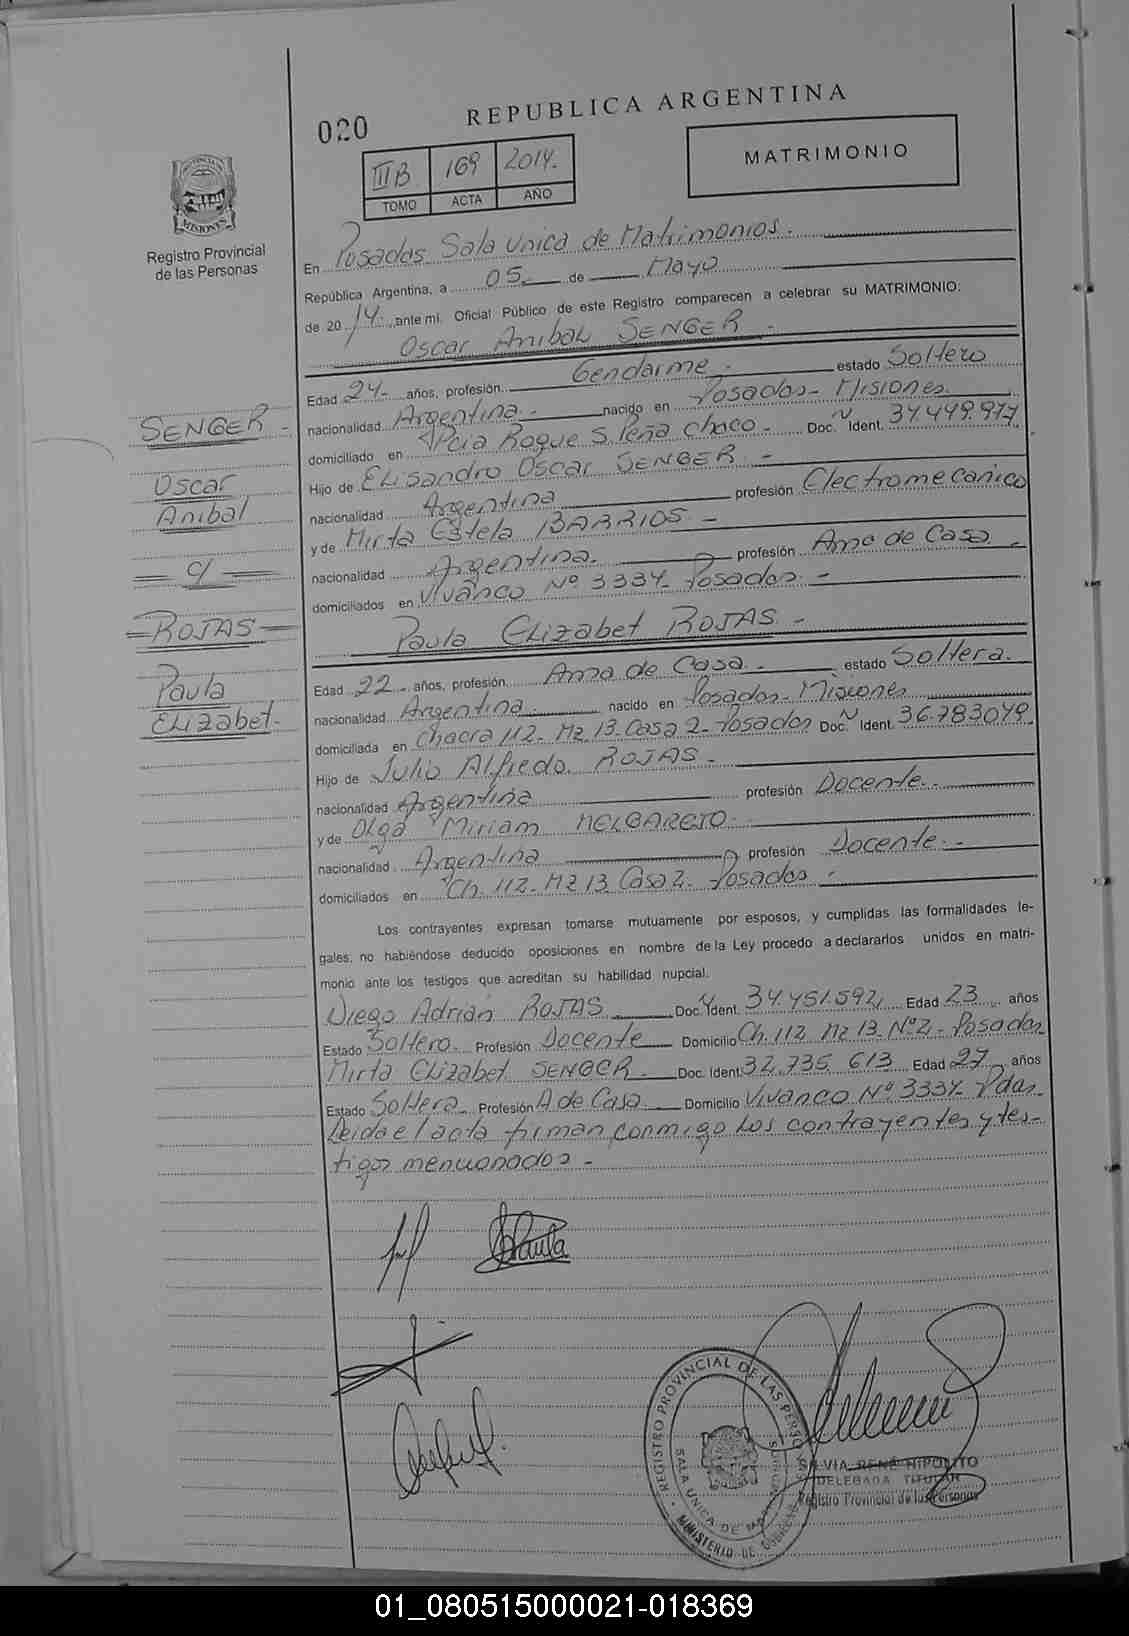 REPUBLICA ARGENTINA
020
MATRIMONIO
III B 169 2014.
TOMO ACTA AÑO
PROVINCIA DE MISIONES
Registro Provincial
de las Personas
En Posadas Sala Unica de Matrimonios.
República Argentina, a 05 de Mayo
de 2014. ante mi, Oficial Público de este Registro comparecen a celebrar su MATRIMONIO:
Oscar Anibal SENGER -
Edad 24- años, profesión Gendarme - estado Soltero
nacionalidad Argentina.- nacido en Posadas- Misiones
domiciliado en Pcia Roque S. Peña Chaco - Doc. Ident. 34.449.977
Hijo de Elisandro Oscar SENGER -
nacionalidad Argentina profesión Electromecánico
y de Mirta Estela BARRIOS -
nacionalidad Argentina. profesión Ama de Casa -
domiciliados en Vivanco Nº 3334- Posadas -
Paula Elizabet ROJAS -
Edad 22- años, profesión Ama de Casa - estado Soltera.
nacionalidad Argentina. nacido en Posadas- Misiones
domiciliada en Chacra 112- Mz 13. Casa 2- Posadas Doc. Ident. 36.783.049
Hijo de Julio Alfredo ROJAS -
nacionalidad Argentina profesión Docente.-
y de Olga Miriam MELGAREJO.-
nacionalidad Argentina profesión Docente.-
domiciliados en Ch. 112- Mz 13. Casa 2- Posadas -
Los contrayentes expresan tomarse mutuamente por esposos, y cumplidas las formalidades le-
gales, no habiéndose deducido oposiciones en nombre de la Ley procedo a declararlos unidos en matri-
monio ante los testigos que acreditan su habilidad nupcial.
Diego Adrián ROJAS Doc. Ident. 34.451.592 Edad 23 años
Estado Soltero- Profesión Docente Domicilio Ch. 112 Mz 13- Nº 2- Posadas
Mirta Elizabet SENGER- Doc. Ident. 32.735.613 Edad 27 años
Estado Soltera- Profesión A de Casa Domicilio Vivanco Nº 3334- Pdas-
Leida el acta firman conmigo los contrayentes y tes-
tigos mencionados -
SENGER -
Oscar
Anibal
= c/ =
=ROJAS=
Paula
Elizabet-
Paula
REGISTRO PROVINCIAL DE LAS PERSONAS
SALA UNICA DE
MINISTERIO DE GOBIERNO
SILVIA RENÉ HIPOLITO
DELEGADA TITULAR
Registro Provincial de las Personas
01_080515000021-018369